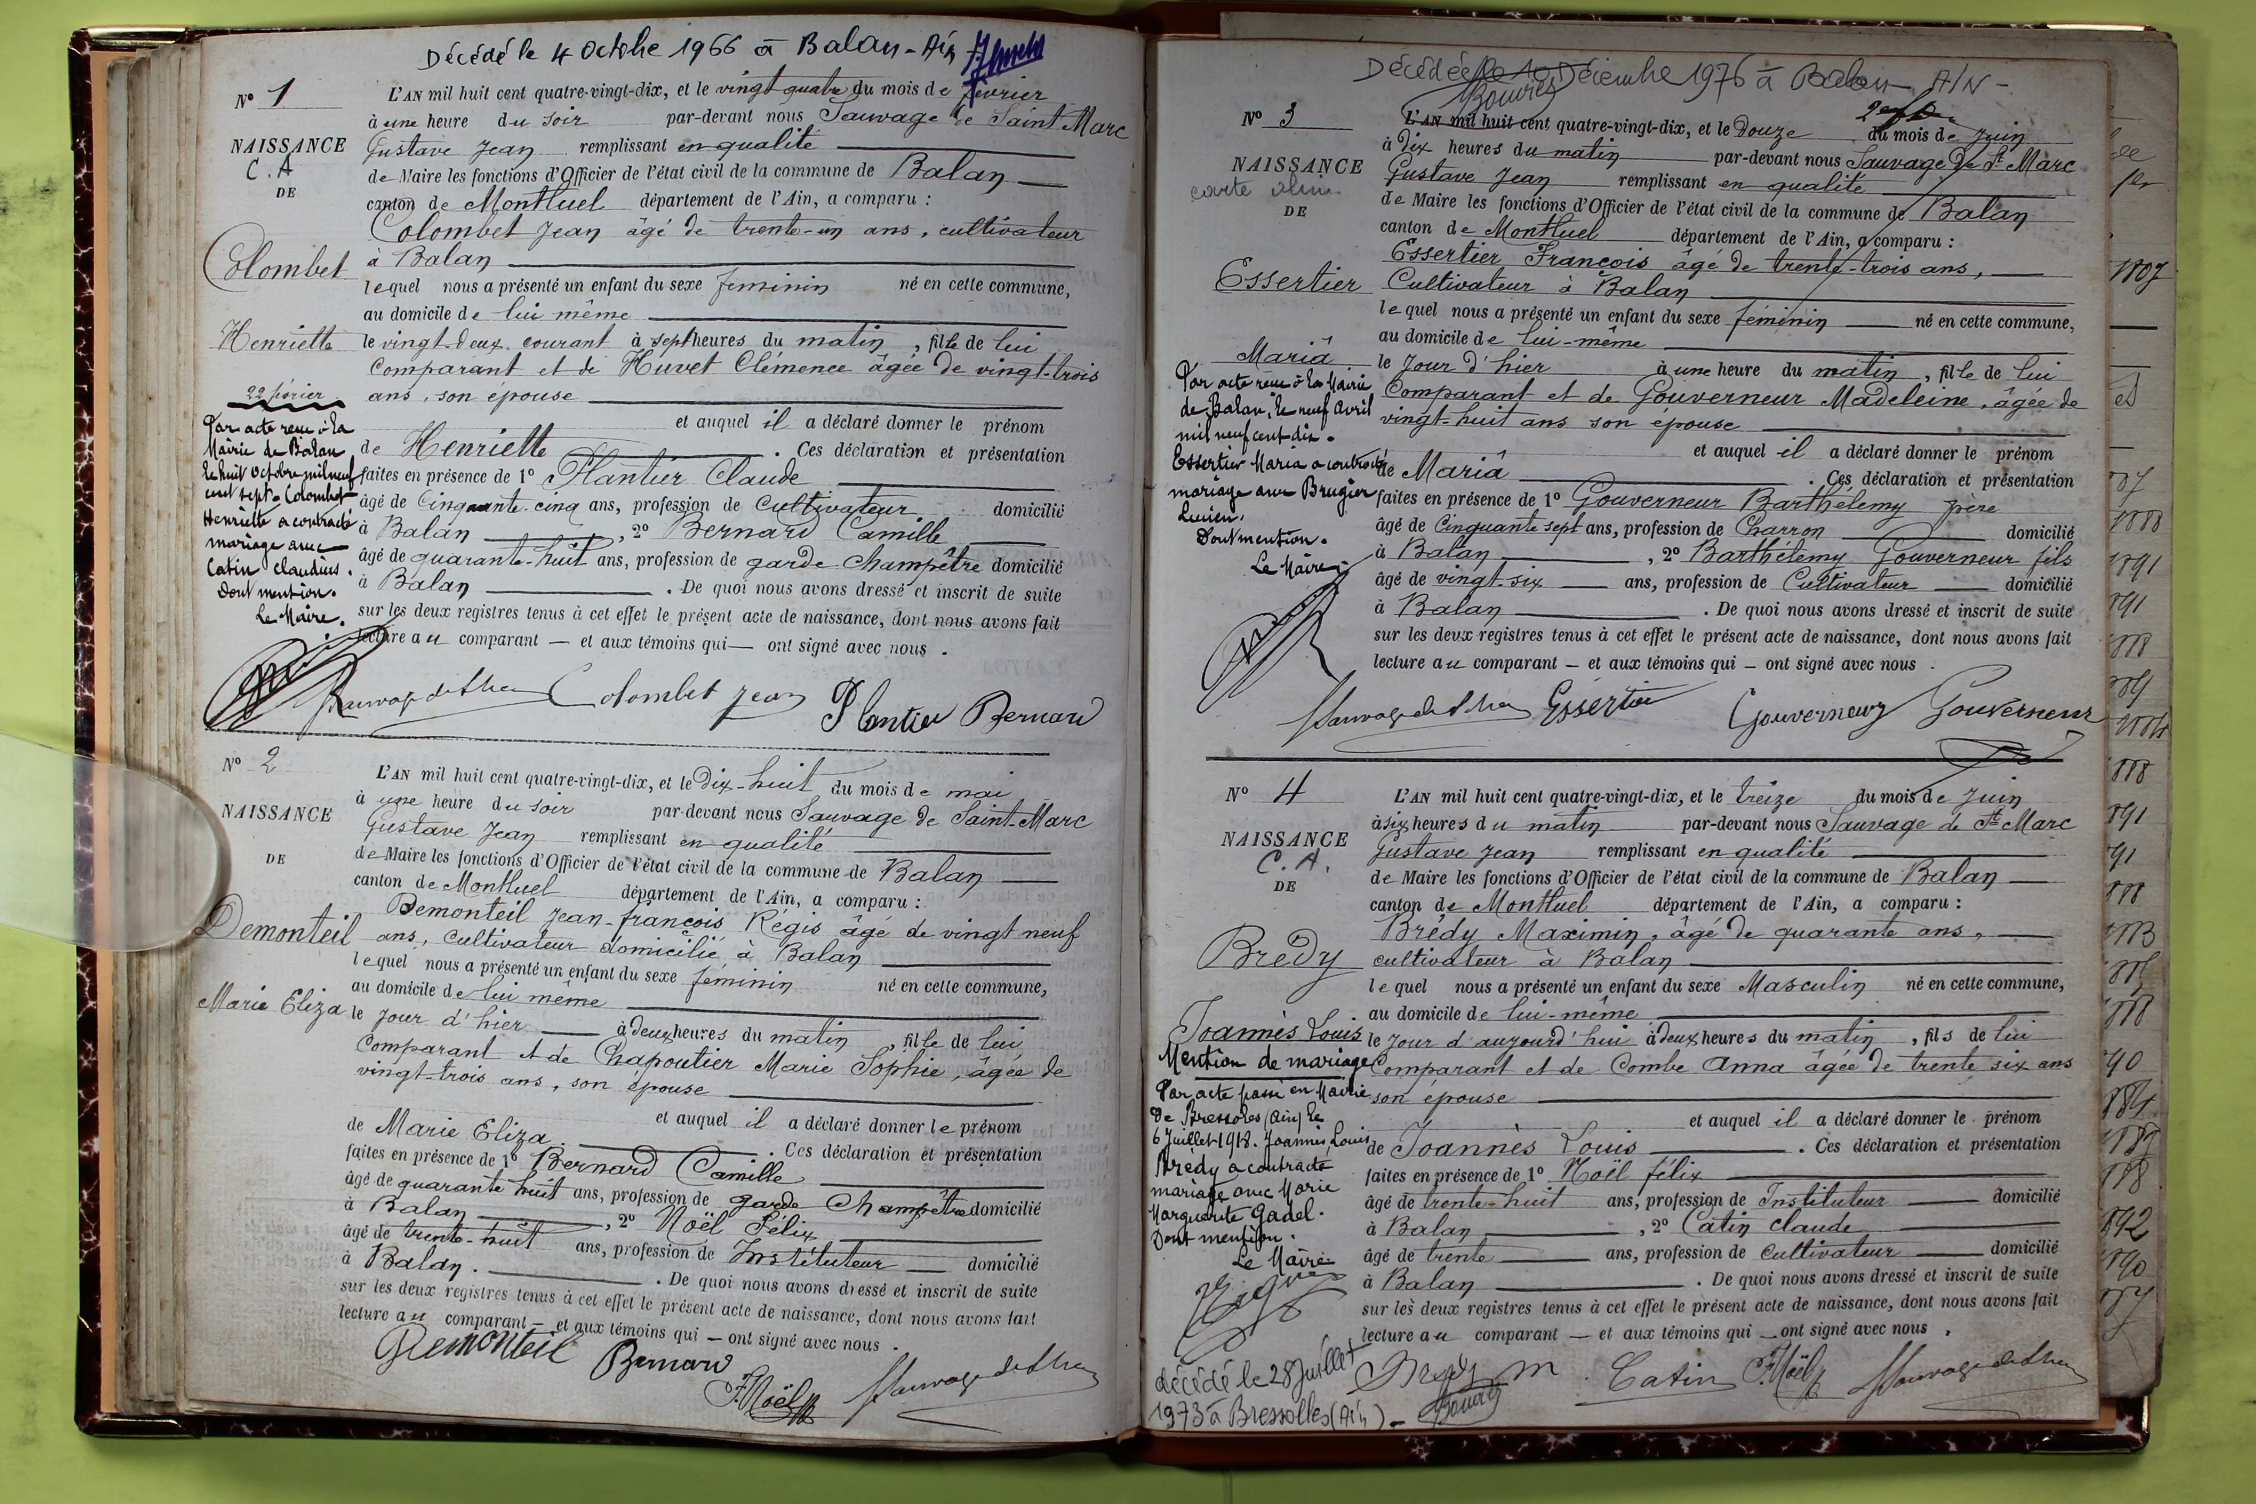 Décédé le 4 Octobre 1966 à Balan - Ain
N° 1
NAISSANCE
C.A
DE
Colombet
Henriette
22 février
Par acte reçu à la
Mairie de Balan
le huit octobre mil neuf
cent sept. Colombet
Henriette a contracté
mariage avec
Catin Claudius.
Dont mention.
Le Maire.
L'AN mil huit cent quatre-vingt-dix, et le vingt quatre du mois de février
à une heure du soir par-devant nous Sauvage de Saint Marc
Gustave Jean remplissant en qualité
de Maire les fonctions d'Officier de l'état civil de la commune de Balan
canton de Montluel département de l'Ain, a comparu :
Colombet Jean âgé de trente-un ans, cultivateur
à Balan
lequel nous a présenté un enfant du sexe féminin né en cette commune,
au domicile de lui même
le vingt-deux courant à sept heures du matin, fille de lui
comparant et de Huvet Clémence âgée de vingt-trois
ans, son épouse
et auquel il a déclaré donner le prénom
de Henriette. Ces déclaration et présentation
faites en présence de 1° Plantier Claude
âgé de Cinquante-cinq ans, profession de cultivateur domicilié
à Balan, 2° Bernard Camille
âgé de quarante-huit ans, profession de garde-champêtre domicilié
à Balan. De quoi nous avons dressé et inscrit de suite
sur les deux registres tenus à cet effet le présent acte de naissance, dont nous avons fait
lecture au comparant — et aux témoins qui — ont signé avec nous.
Colombet Jean Plantier Bernard
N° 2
NAISSANCE
DE
Demonteil
Marie Eliza
L'AN mil huit cent quatre-vingt-dix, et le Dix-huit du mois de mai
à une heure du soir par-devant nous Sauvage de Saint-Marc
Gustave Jean remplissant en qualité
de Maire les fonctions d'Officier de l'état civil de la commune de Balan
canton de Montluel département de l'Ain, a comparu :
Demonteil Jean-françois Régis âgé de vingt neuf
ans, cultivateur domicilié à Balan
lequel nous a présenté un enfant du sexe féminin né en cette commune,
au domicile de lui même
le jour d'hier à deux heures du matin, fille de lui
comparant et de Chapoutier Marie Sophie, âgée de
vingt-trois ans, son épouse
et auquel il a déclaré donner le prénom
de Marie Eliza. Ces déclaration et présentation
faites en présence de 1° Bernard Camille
âgé de quarante huit ans, profession de garde Champêtre domicilié
à Balan, 2° Noël Félix
âgé de trente-huit ans, profession de Instituteur domicilié
à Balan. De quoi nous avons dressé et inscrit de suite
sur les deux registres tenus à cet effet le présent acte de naissance, dont nous avons fait
lecture au comparant — et aux témoins qui — ont signé avec nous.
Demonteil Bernard
F. Noël
Décédée le 10 Décembre 1976 à Balan AIN -
N° 3
NAISSANCE
carte
DE
Essertier
Mariâ
Par acte reçu à la Mairie
de Balan, le neuf Avril
mil neuf cent dix.
Essertier Maria a contracté
mariage avec Brugier
Lucien.
Dont mention.
Le Maire
L'AN mil huit cent quatre-vingt-dix, et le douze du mois de Juin
à dix heures du matin par-devant nous Sauvage de St Marc
Gustave Jean remplissant en qualité
de Maire les fonctions d'Officier de l'état civil de la commune de Balan
canton de Montluel département de l'Ain, a comparu :
Essertier François âgé de trente-trois ans,
Cultivateur à Balan
lequel nous a présenté un enfant du sexe féminin né en cette commune,
au domicile de lui-même
le Jour d'hier à une heure du matin, fille de lui
Comparant et de Gouverneur Madeleine, âgée de
vingt-huit ans son épouse
et auquel il a déclaré donner le prénom
de Mariâ. Ces déclaration et présentation
faites en présence de 1° Gouverneur Barthélemy père
âgé de Cinquante sept ans, profession de Charron domicilié
à Balan, 2° Barthélemy Gouverneur fils
âgé de vingt-six ans, profession de Cultivateur domicilié
à Balan. De quoi nous avons dressé et inscrit de suite
sur les deux registres tenus à cet effet le présent acte de naissance, dont nous avons fait
lecture au comparant — et aux témoins qui — ont signé avec nous.
Essertier Gouverneur Gouverneur
N° 4
NAISSANCE
C.A.
DE
Brédy
Joannès Louis
Mention de mariage
Par acte passé en Mairie
de Bressoles (Ain) le
6 Juillet 1918. Joannès Louis
Brédy a contracté
mariage avec Marie
Marguerite Gadel.
Dont mention.
Le Maire
décédé le 28 Juillet
1973 à Bressolles (Ain) -
L'AN mil huit cent quatre-vingt-dix, et le treize du mois de Juin
à six heures du matin par-devant nous Sauvage de St Marc
Gustave Jean remplissant en qualité
de Maire les fonctions d'Officier de l'état civil de la commune de Balan
canton de Montluel département de l'Ain, a comparu :
Brédy Maximin, âgé de quarante ans,
cultivateur à Balan
lequel nous a présenté un enfant du sexe Masculin né en cette commune,
au domicile de lui-même
le Jour d'aujourd'hui à deux heures du matin, fils de lui
Comparant et de Combe Anna âgée de trente six ans
son épouse
et auquel il a déclaré donner le prénom
de Joannès Louis. Ces déclaration et présentation
faites en présence de 1° Noël félix
âgé de trente-huit ans, profession de Instituteur domicilié
à Balan, 2° Catin Claude
âgé de trente ans, profession de cultivateur domicilié
à Balan. De quoi nous avons dressé et inscrit de suite
sur les deux registres tenus à cet effet le présent acte de naissance, dont nous avons fait
lecture au comparant — et aux témoins qui — ont signé avec nous.
Catin F. Noël